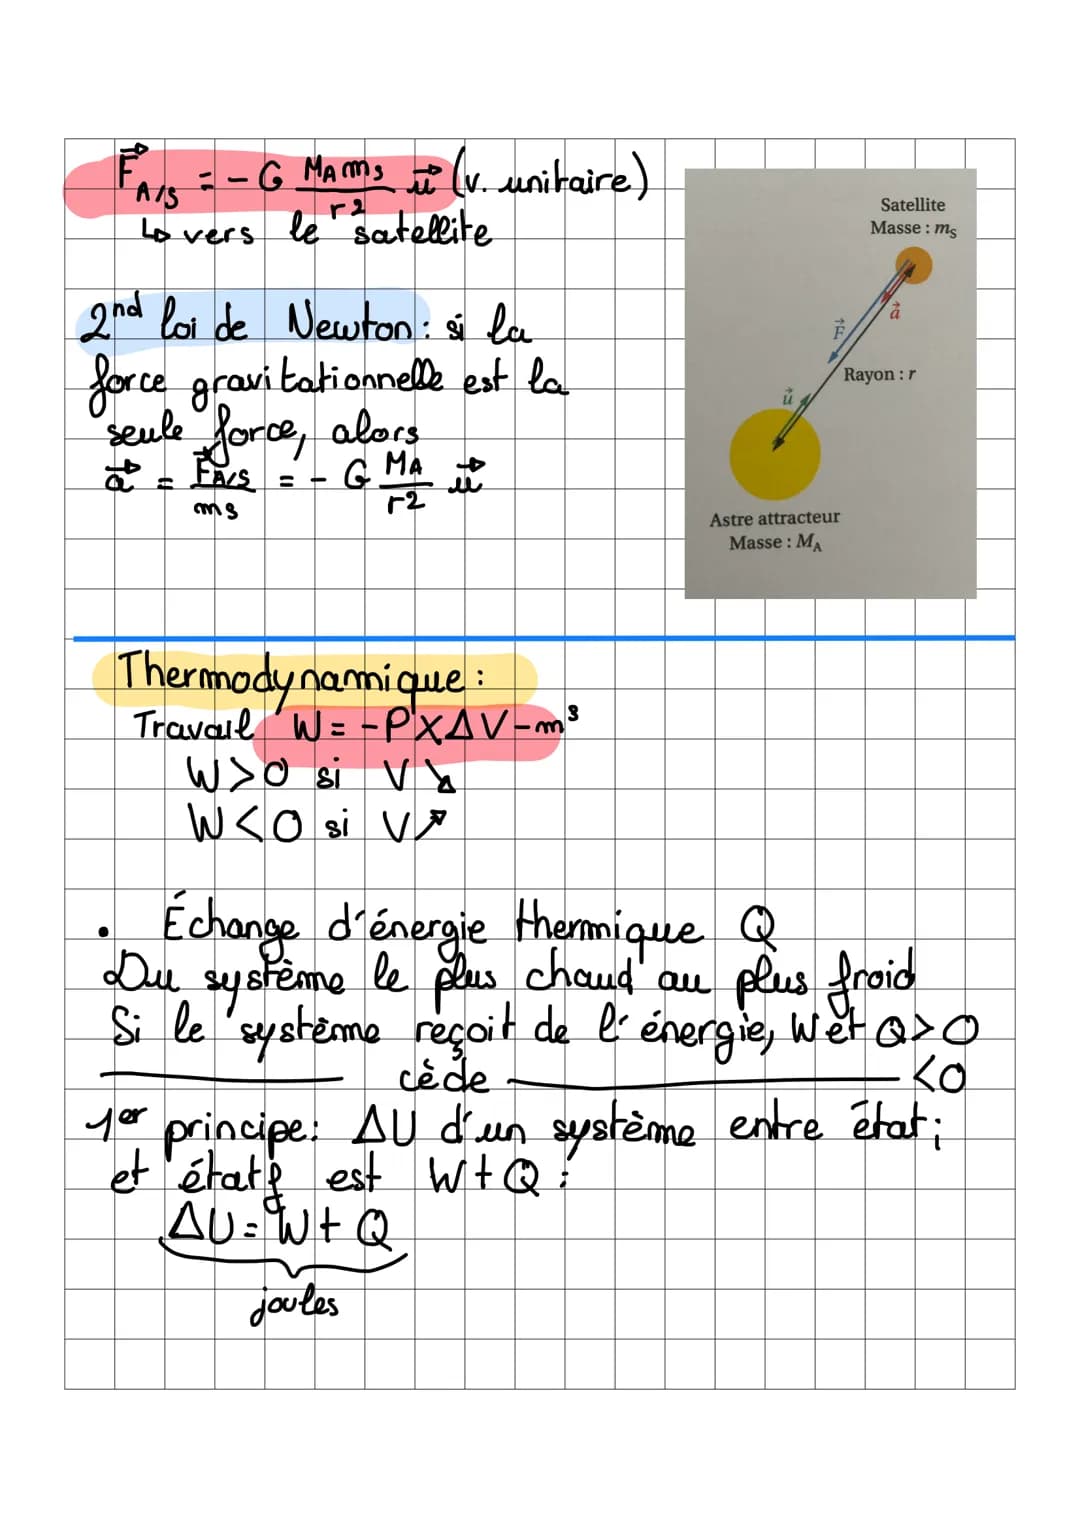 F⃗A/S = -G MA mS / r² u⃗ (v. unitaire)
↳ vers le satellite
2nd loi de Newton : si la
force gravitationnelle est la
seule force, alors
a⃗ = F⃗A/S / mS = - G MA / r² u⃗
Satellite
Masse : mS
a⃗
F⃗
Rayon : r
u⃗
Astre attracteur
Masse : MA
Thermodynamique :
Travail W = -P×ΔV - m³
W>0 si V ↘
W<0 si V ↗
• Échange d'énergie thermique Q
Du système le plus chaud au plus froid
Si le système reçoit de l'énergie, W et Q>0
cède <0
1er principe : ΔU d'un système entre état i
et état f est W+Q :
ΔU = W+Q
joules